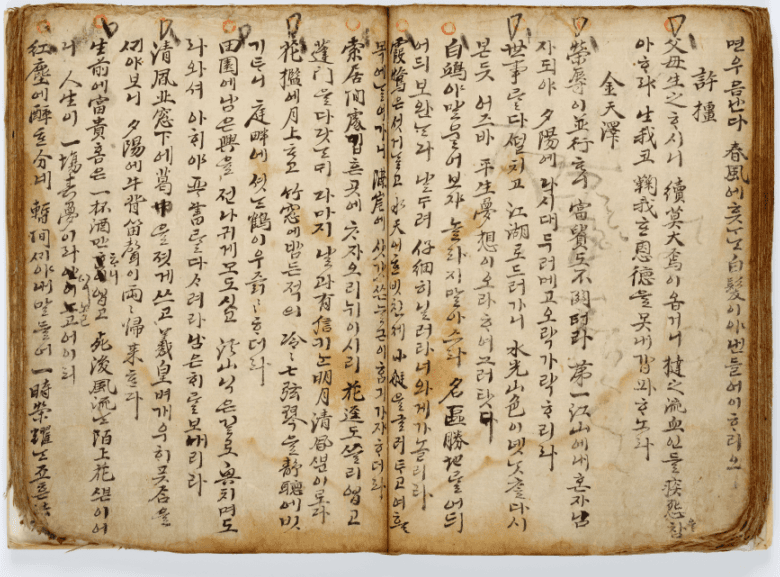 면우음반다 春風에흣노白髮이야낸들어이ᄒᆞ리오
許橿
父母生之ᄒᆞ시니 續莫大焉이옵거니 撻之流血인들 疾怨ᄒᆞᆯ
아ᄒᆞ랴 生我코 鞠我ᄒᆞᆫ恩德을못내갑파ᄒᆞ노라
金天澤
榮辱이並行ᄒᆞ니 富貴도不關터라 第一江山에내혼자님
자되야 夕陽에낙시대두러메고오락가락ᄒᆞ리라
世事를다썰치고 江湖로드러가니 水光山色이녯ᄂᆞᆺ츨다시
본듯 어즈버 平生夢想이오라ᄒᆞ여그러탓다
白鷗야말무러보쟈 놀라지말아스라 名區勝地를어듸
어듸보완ᄂᆞᆫ다 날ᄃᆞ려仔細히닐러라너와게가놀리라
霞鶩은섯거ᄂᆞᆯ고 水天에ᄒᆞᆫ빗친제 小艇을글러ᄐᆞ고여흘
목에ᄂᆞ려가니 隔岸에삿갓쓴늘근이함기가쟈ᄒᆞ더라
索居閒處깁흔곳에 ᄎᆞ자오리뉘이시리 花逕도쓸리업고
蓬門을다닷ᄂᆞᆫ듸 다마지날과有信기ᄂᆞᆫ明月清風ᄲᅮᆫ이로다
花檻에月上ᄒᆞ고 竹窓에밤든적의 冷々七弦琴을靜聽에빗
기ᄐᆞ니 庭畔에셧ᄂᆞᆫ鶴이우즑々ᄒᆞ더라
田園에남은興을 전나귀게모도싯고 溪山닉은길로興치며도
라와셔 아ᄒᆡ야琴書를다ᄉᆞ려라남은ᄒᆡ를보내리라
清風北窓下에葛巾을젯게쓰고 羲皇벼개우희ᄭᅮᆷ을
ᄭᆡ야보니 夕陽에牛背笛聲이兩々歸來ᄒᆞ더라
生前에富貴홈은一杯酒만업고 死後風流ᄂᆞᆫ陌上花ᄲᅮᆫ이어
니 人生이一場春夢이라아니놀고어이리
紅塵에醉ᄒᆞᆫ分네 暫間ᄭᆡ야내말들어 一時榮耀ᄂᆞᆫ죠흔